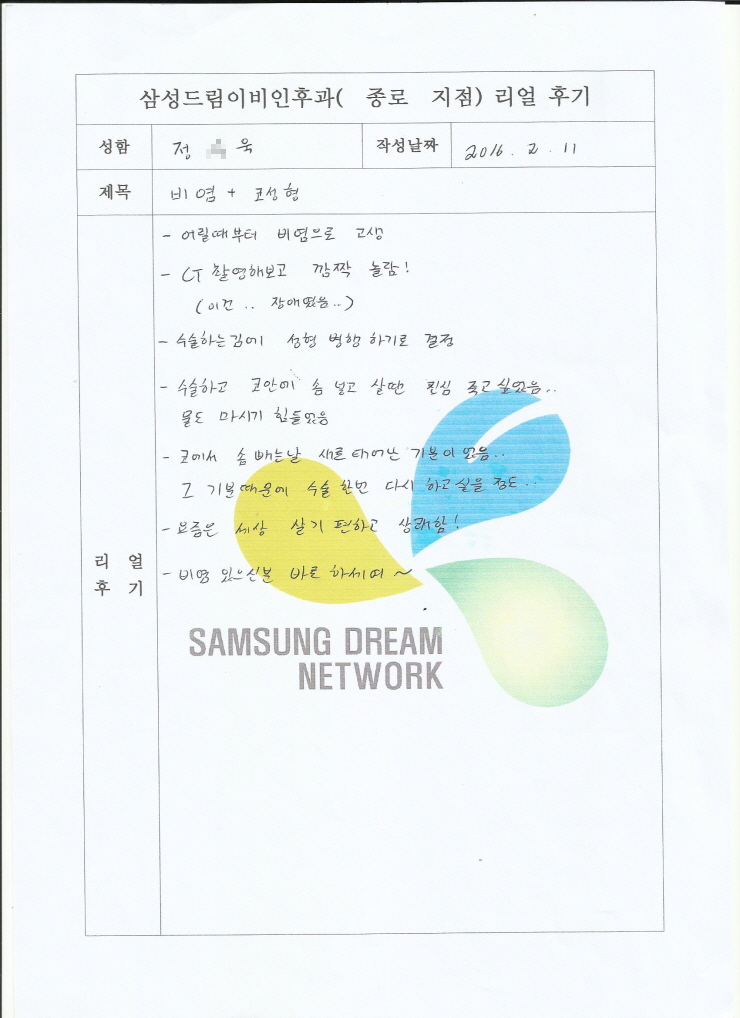 삼성드림이비인후과( 종로 지점) 리얼 후기
성함 정 욱 작성날짜 2016. 2. 11
제목 비염 + 코성형
- 어릴때부터 비염으로 고생
- CT 촬영해보고 깜짝 놀람!
(이건 .. 장애였음..)
- 수술하는김에 성형 병행 하기로 결정
- 수술하고 코안에 솜 넣고 살땐 진심 죽고 싶었음..
물도 마시기 힘들었음
- 코에서 솜 빼는날 새로 태어난 기분이 었음..
그 기분때문에 수술 한번 다시 하고 싶을 정도..
- 요즘은 세상 살기 편하고 상쾌함!
리 얼
후 기
- 비염 있으신분 바로 하세여 ~
SAMSUNG DREAM
NETWORK